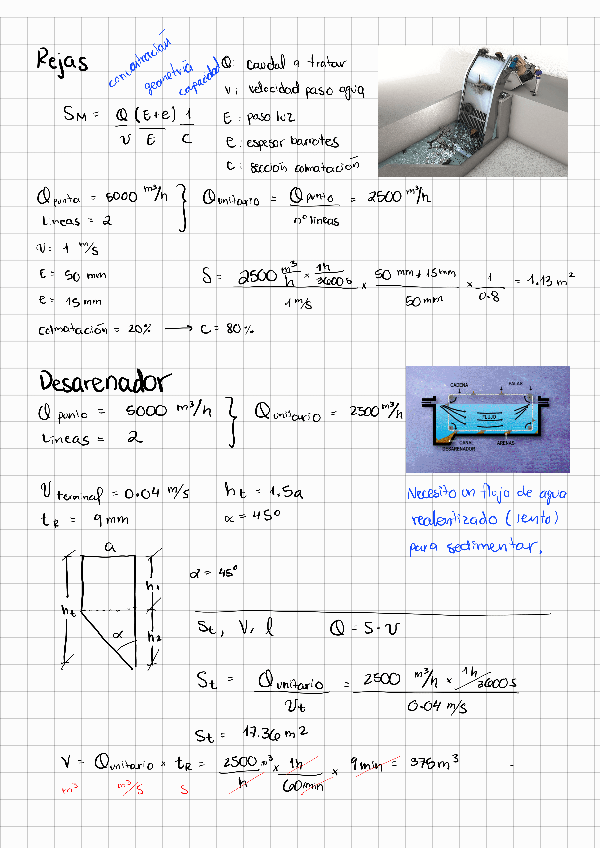 Rejas
concentración
geometría
capacidad
Q: caudal a tratar
V: velocidad paso agua
E: paso luz
e: espesor barrotes
C: sección colmatación
SM = Q/V (E+e)/E 1/C
Q punta = 5000 m³/h
Líneas = 2
Q unitario = Q punta / nº líneas = 2500 m³/h
V = 1 m/s
E = 50 mm
e = 15 mm
S = 2500 m³/h × 1h/3600s / 1 m/s × 50 mm + 15 mm / 50 mm × 1/0.8 = 1.13 m²
Colmatación = 20% → C = 80%
Desarenador
Q punto = 5000 m³/h
Líneas = 2
Q unitario = 2500 m³/h
CADENA
PALAS
FLUJO
CANAL DESARENADOR
ARENAS
V terminal = 0.04 m/s
ht = 1.5a
tR = 9mm
α = 45º
Necesito un flujo de agua
realentizado (lento)
para sedimentar.
a
ht
h1
h2
α
α = 45º
St, V, l
Q = S · v
St = Q unitario / Vt = 2500 m³/h × 1h/3600s / 0.04 m/s
St = 17.36 m²
V = Q unitario × tR = 2500 m³/h × 1h/60min × 9min = 375m³
m³ m³/s s